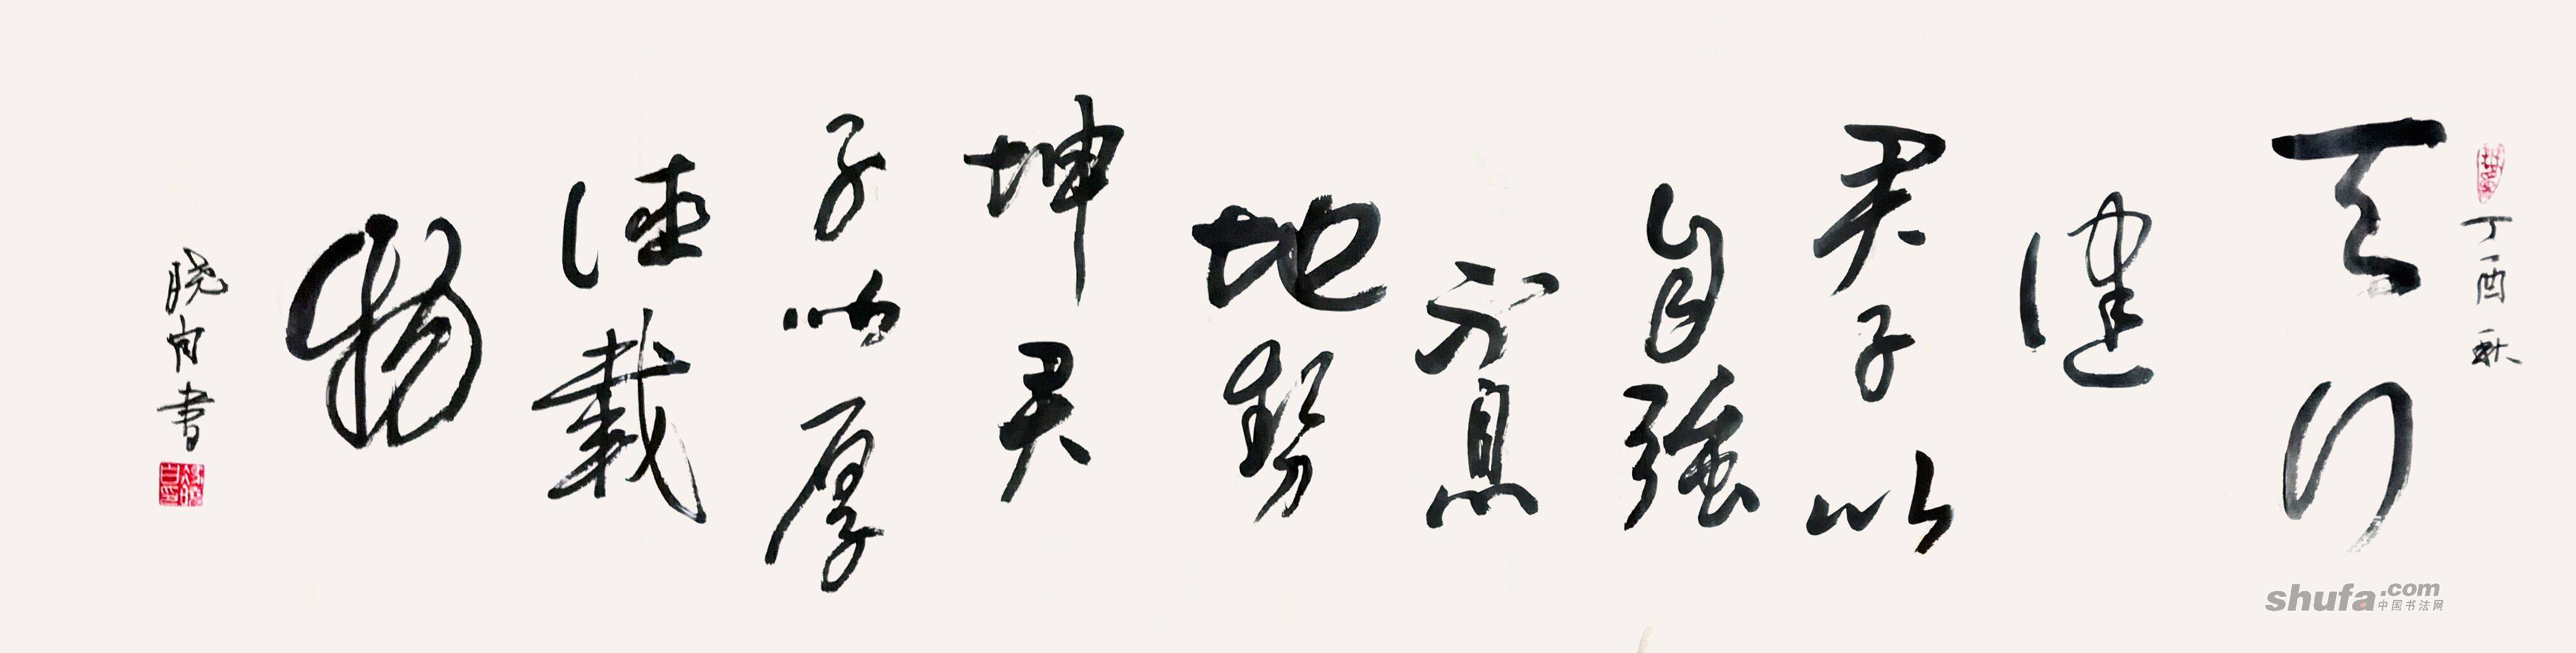 丁酉秋
天行
健
君子以
自強
不息
地勢
坤君
子以厚
德載
物
晓宵书
shufa.com
中国书法网